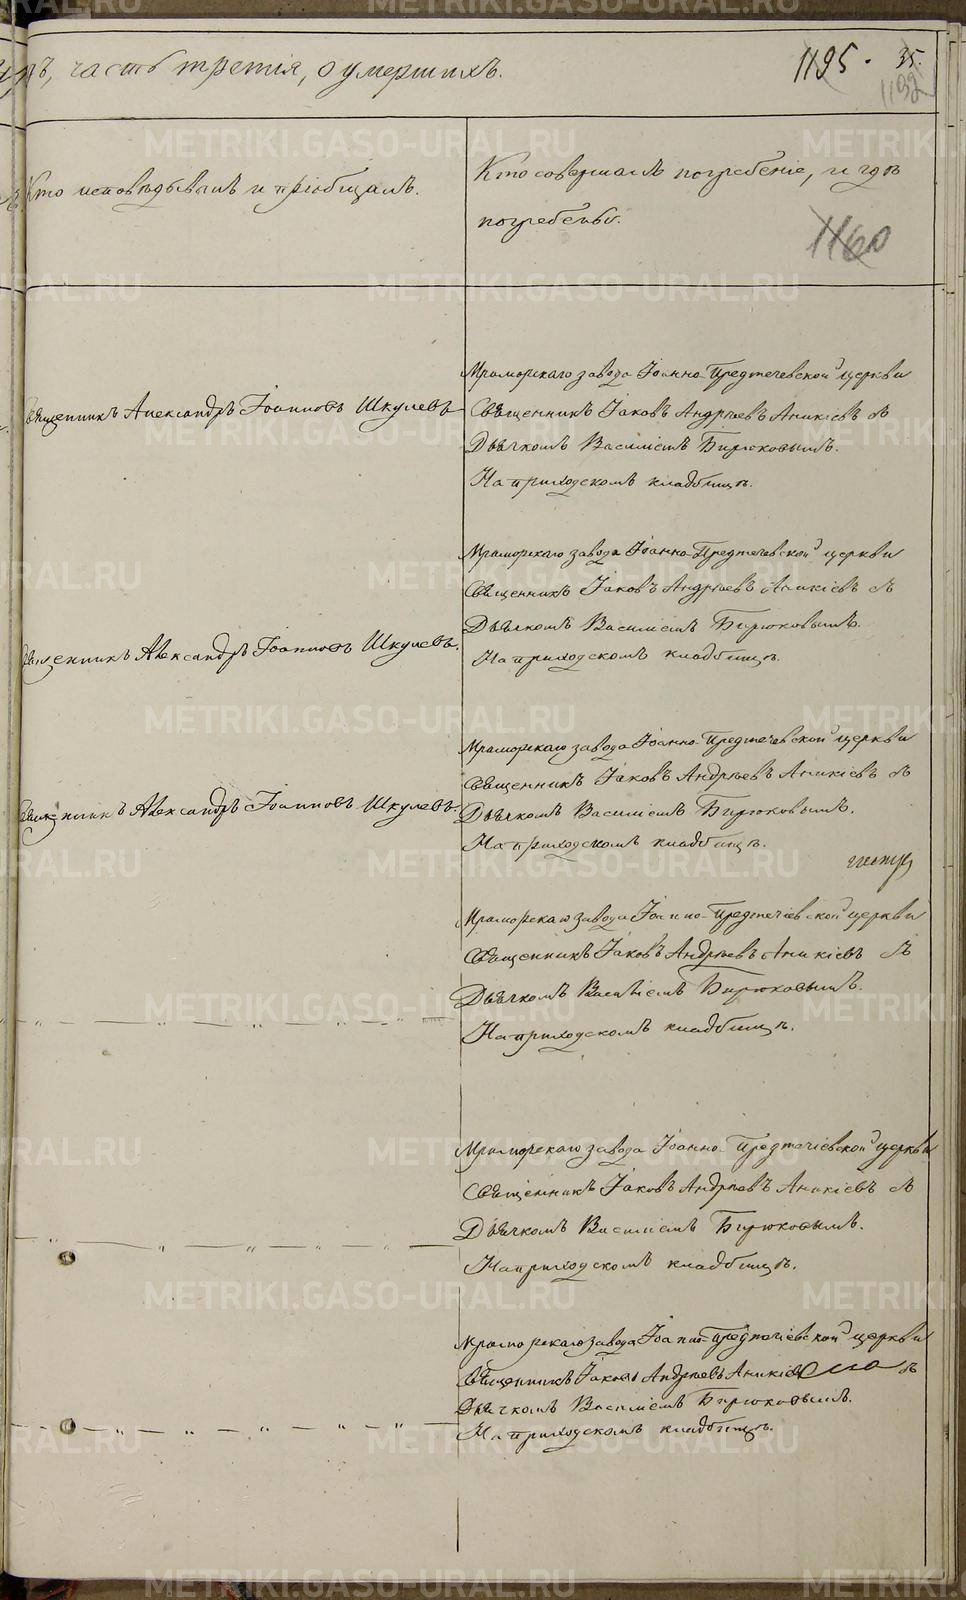 часть третія, о умершихъ.
1195.
35.
1160
Кто исповѣдывалъ и пріобщалъ.
Кто совершалъ погребеніе, и гдѣ
погребены.
Мраморскаго завода Іоанно-Предтечевской церкви
Священникъ Александръ Іоанновъ Шкулевъ
Священникъ Іаковъ Андреевъ Аникіевъ съ
Дьячкомъ Василіемъ Бирюковымъ.
На приходскомъ кладбищѣ.
Мраморскаго завода Іоанно-Предтечевской церкви
Священникъ Іаковъ Андреевъ Аникіевъ съ
Дьячкомъ Василіемъ Бирюковымъ.
Священникъ Александръ Іоанновъ Шкулевъ.
На приходскомъ кладбищѣ.
Мраморскаго завода Іоанно-Предтечевской церкви
Священникъ Іаковъ Андреевъ Аникіевъ съ
Священникъ Александръ Іоанновъ Шкулевъ.
Дьячкомъ Василіемъ Бирюковымъ.
На приходскомъ кладбищѣ.
Мраморскаго завода Іоанно-Предтечіевской церкви
Священникъ Іаковъ Андреевъ Аникіевъ съ
Дьячкомъ Василіемъ Бирюковымъ.
На приходскомъ кладбищѣ.
Мраморскаго завода Іоанно-Предтечіевской церкви
Священникъ Іаковъ Андреевъ Аникіевъ съ
Дьячкомъ Василіемъ Бирюковымъ.
На приходскомъ кладбищѣ.
Мраморскаго завода Іоанно-Предтечіевской церкви
Священникъ Іаковъ Андреевъ Аникіев съ
Дьячкомъ Василіемъ Бирюковымъ.
На приходскомъ кладбищѣ.
METRIKI.GASO-URAL.RU